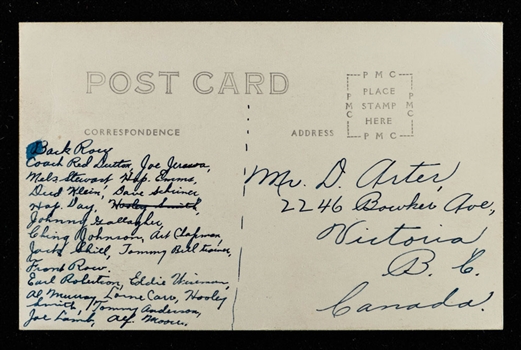 POST CARD
CORRESPONDENCE
ADDRESS
PMC
PMC
PLACE
STAMP
HERE
PMC
PMC
Back Row
Coach Red Dutton, Joe Jerwa,
Mels Stewart, Hap. Emms,
Ded Klein, Dave Schriner
Hap. Day, Hooley Smith,
Johnny Gallagher,
Ching Johnson, Art Chapman,
Jack Shill, Tommy Bell trainer,
Front Row.
Earl Robertson, Eddie Wiseman,
Al, Murray, Lorne Carr, Hooley
Smith, Tommy Anderson,
Joe Lamb, Alf. Moore.
Mr. D. Arter,
2246 Bowker Ave,
Victoria
B. C.
Canada.